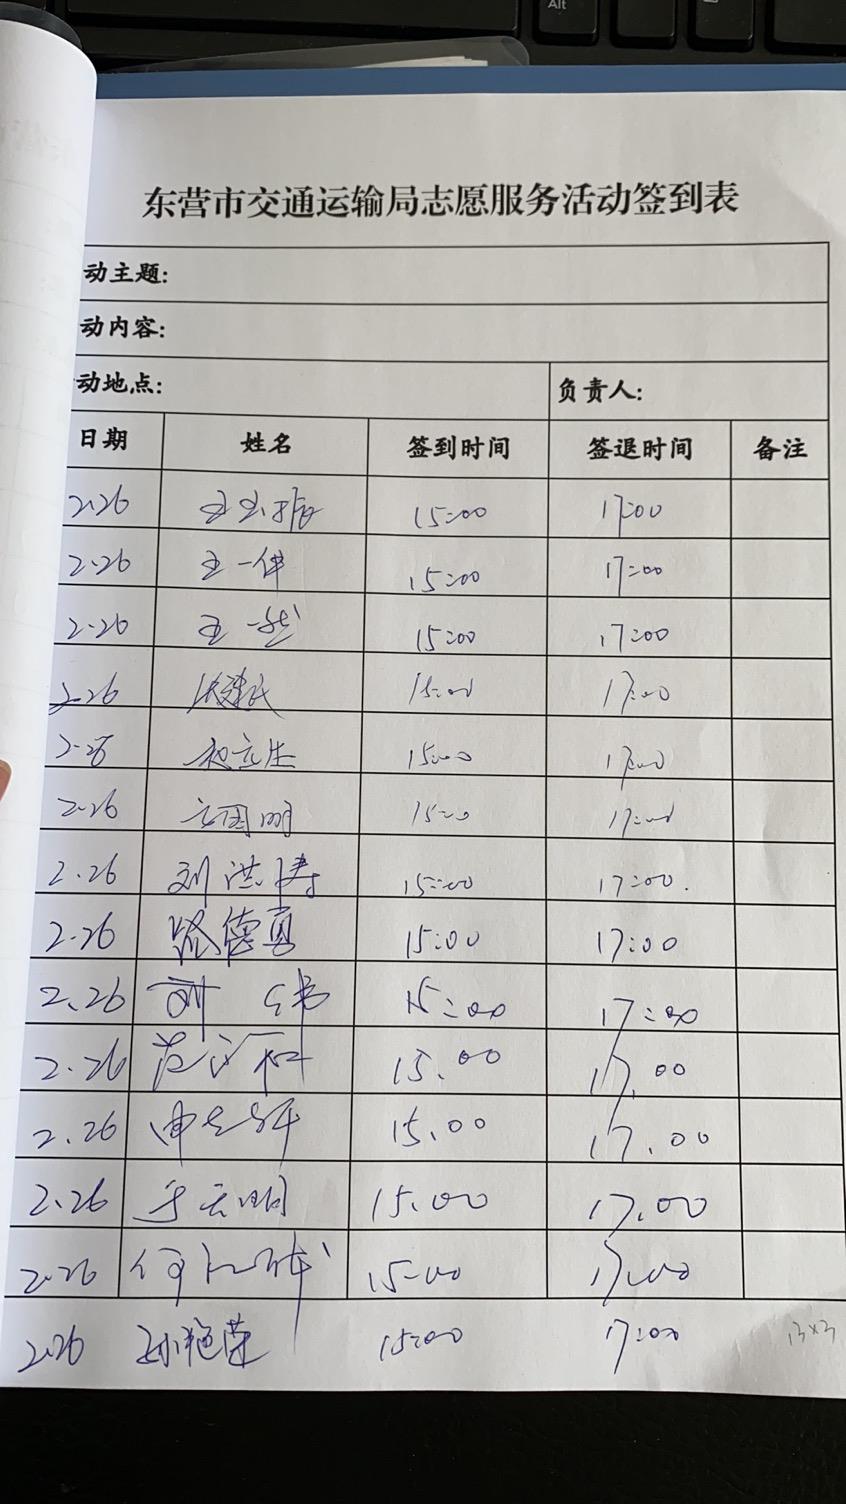 Alt
东营市交通运输局志愿服务活动签到表
动主题:
动内容:
动地点: 负责人:
日期 姓名 签到时间 签退时间 备注
2.26 15:00 17:00
2.26 王一伟 15:00 17:00
2.26 王一然 15:00 17:00
2.26 15:00 17:00
2.26 15:00 17:00
2.26 国明 15:00 17:00
2.26 刘洪涛 15:00 17:00.
2.26 路德勇 15:00 17:00
2.26 15:00 17:00
2.26 范 15.00 17.00
2.26 15.00 17.00
2.26 明 15.00 17.00
2.26 何 15:00 17:00
2.26 孙艳莲 15:00 17:00 13×3